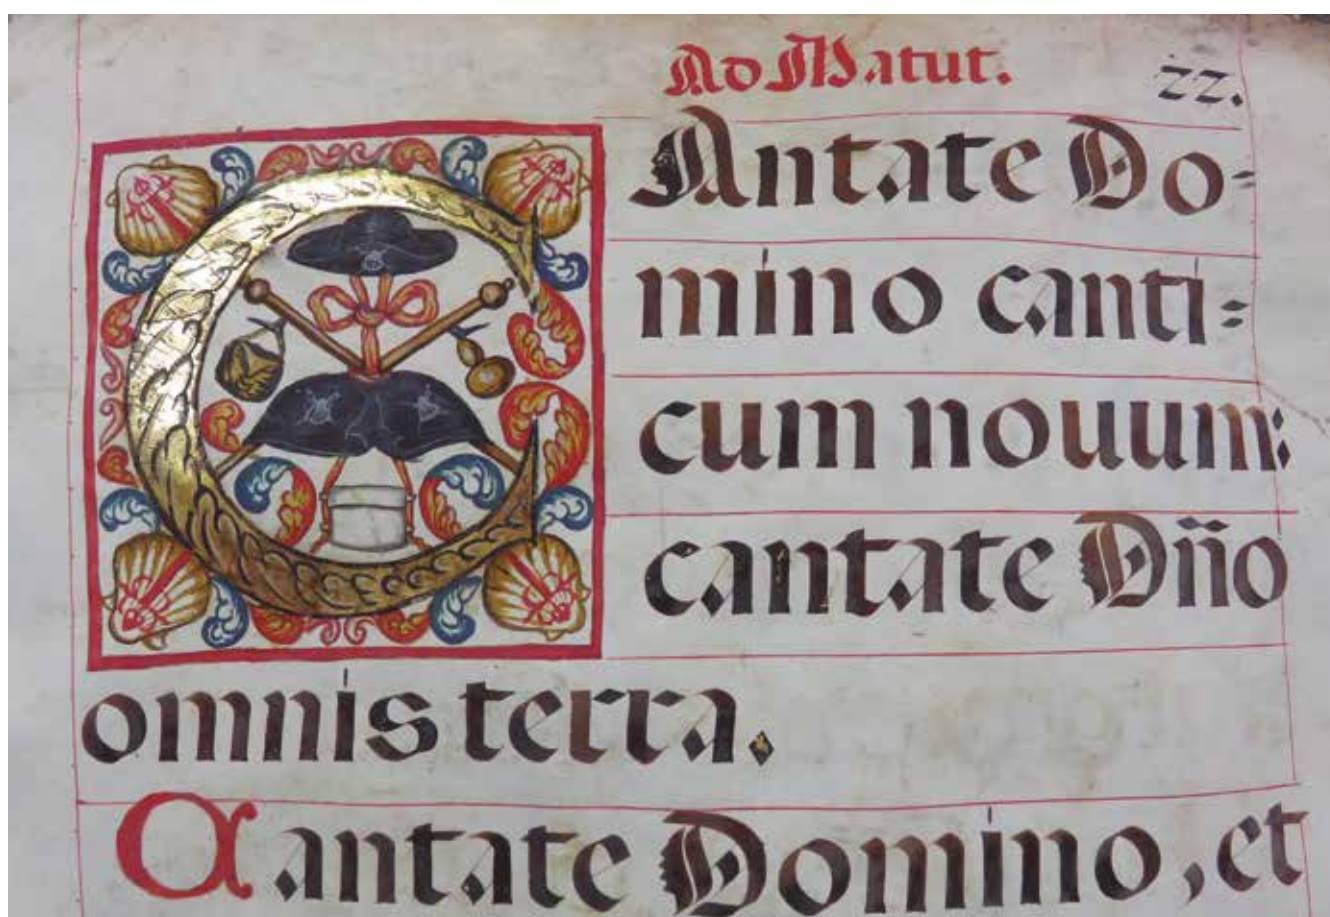 Ad Matut. 22.
CAntate Do=
mino canti=
cum nouum:
cantate Dño
omnis terra.
Cantate Domino, et